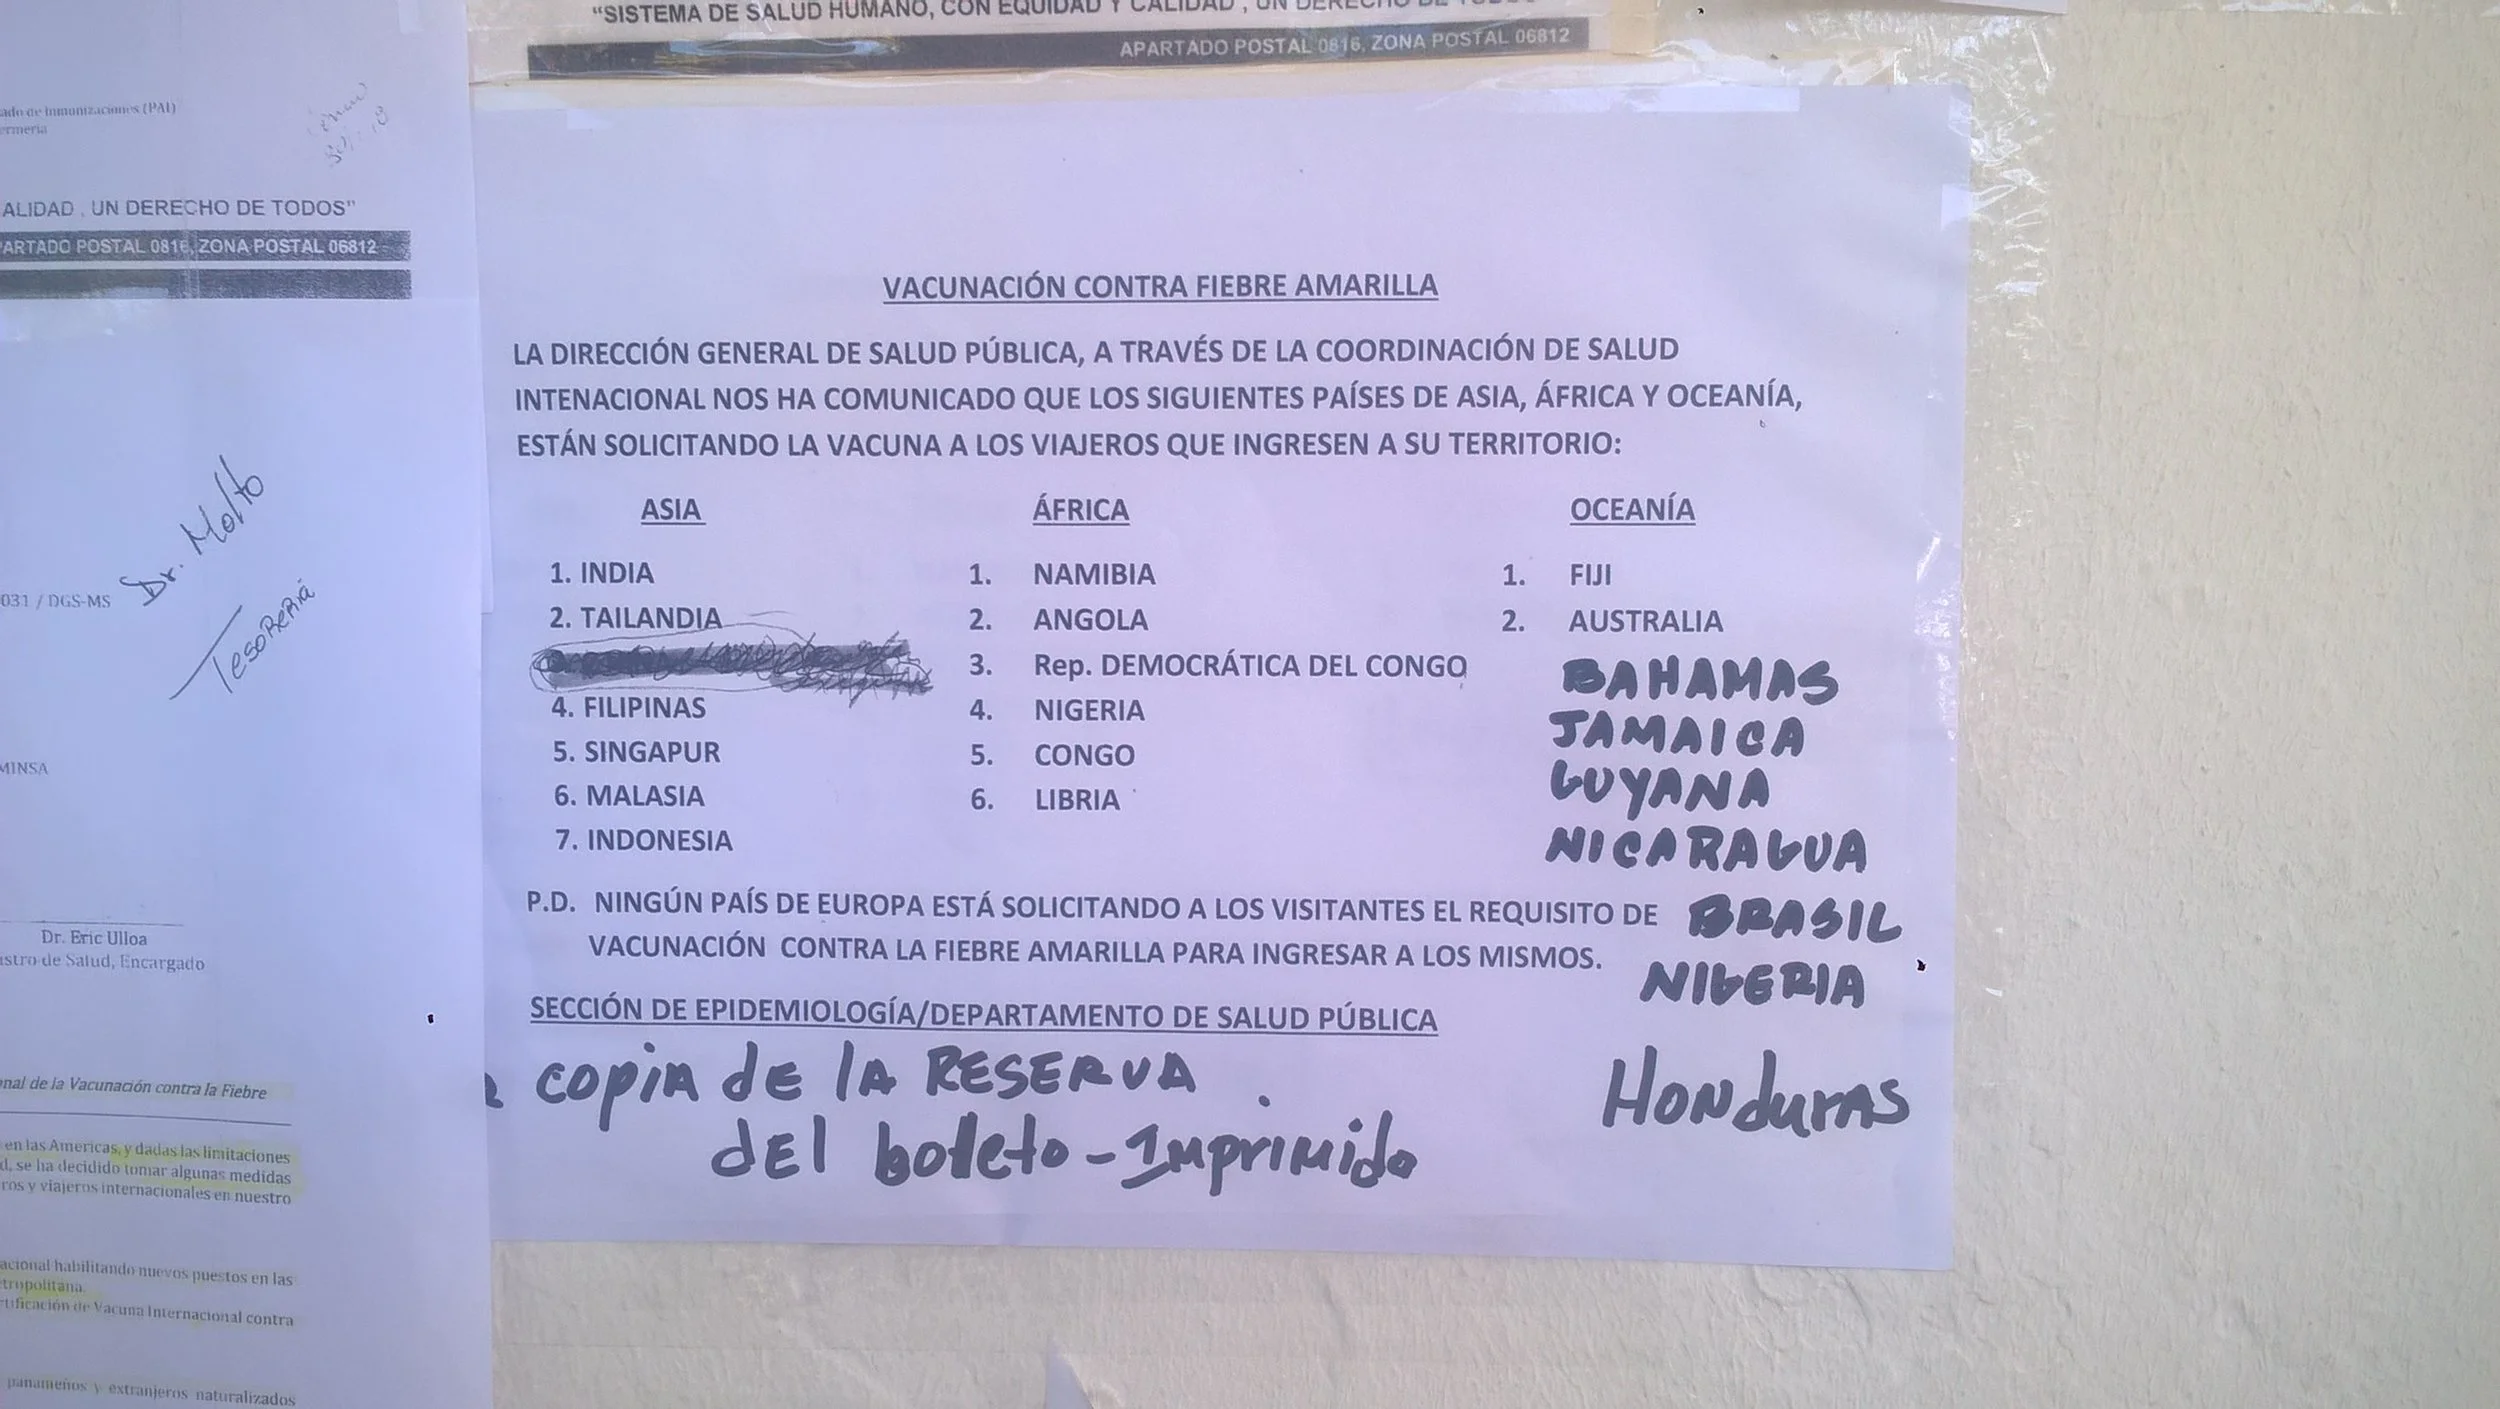 "SISTEMA DE SALUD HUMANO, CON EQUIDAD Y CALIDAD , UN DERECHO DE TODOS"
APARTADO POSTAL 0816, ZONA POSTAL 06812
ado de Inmunizaciones (PAI)
ermería
ALIDAD , UN DERECHO DE TODOS"
PARTADO POSTAL 0816, ZONA POSTAL 06812
Dr. Molto
Tesorería
031 / DGS-MS
MINSA
Dr. Eric Ulloa
istro de Salud, Encargado
onal de la Vacunación contra la Fiebre
en las Americas, y dadas las limitaciones
d, se ha decidido tomar algunas medidas
ros y viajeros internacionales en nuestro
acional habilitando nuevos puestos en las
tropolitana.
rtificación de Vacuna Internacional contra
panameños y extranjeros naturalizados
VACUNACIÓN CONTRA FIEBRE AMARILLA
LA DIRECCIÓN GENERAL DE SALUD PÚBLICA, A TRAVÉS DE LA COORDINACIÓN DE SALUD
INTENACIONAL NOS HA COMUNICADO QUE LOS SIGUIENTES PAÍSES DE ASIA, ÁFRICA Y OCEANÍA,
ESTÁN SOLICITANDO LA VACUNA A LOS VIAJEROS QUE INGRESEN A SU TERRITORIO:
ASIA
1. INDIA
2. TAILANDIA
4. FILIPINAS
5. SINGAPUR
6. MALASIA
7. INDONESIA
ÁFRICA
1. NAMIBIA
2. ANGOLA
3. Rep. DEMOCRÁTICA DEL CONGO
4. NIGERIA
5. CONGO
6. LIBRIA
OCEANÍA
1. FIJI
2. AUSTRALIA
BAHAMAS
JAMAICA
GUYANA
NICARAGUA
BRASIL
NIGERIA
HONduRAS
P.D. NINGÚN PAÍS DE EUROPA ESTÁ SOLICITANDO A LOS VISITANTES EL REQUISITO DE
VACUNACIÓN CONTRA LA FIEBRE AMARILLA PARA INGRESAR A LOS MISMOS.
SECCIÓN DE EPIDEMIOLOGÍA/DEPARTAMENTO DE SALUD PÚBLICA
copia de la RESERVA
del boleto - Imprimido